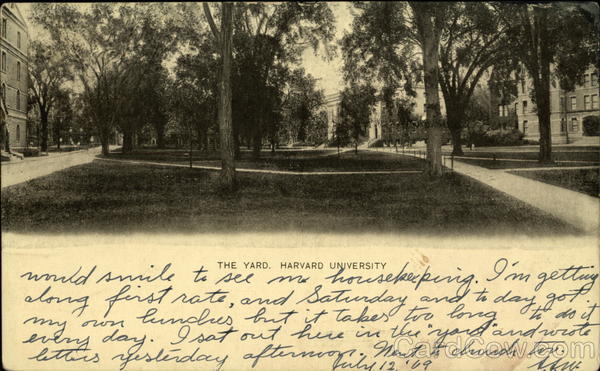 THE YARD, HARVARD UNIVERSITY
would smile to see me housekeeping. I'm getting
along first rate, and Saturday and to day got
my own lunches but it takes too long to do it
every day. I sat out here in the "yard" and wrote
letters yesterday afternoon. Went to church
July 12 '09
CardCow.com